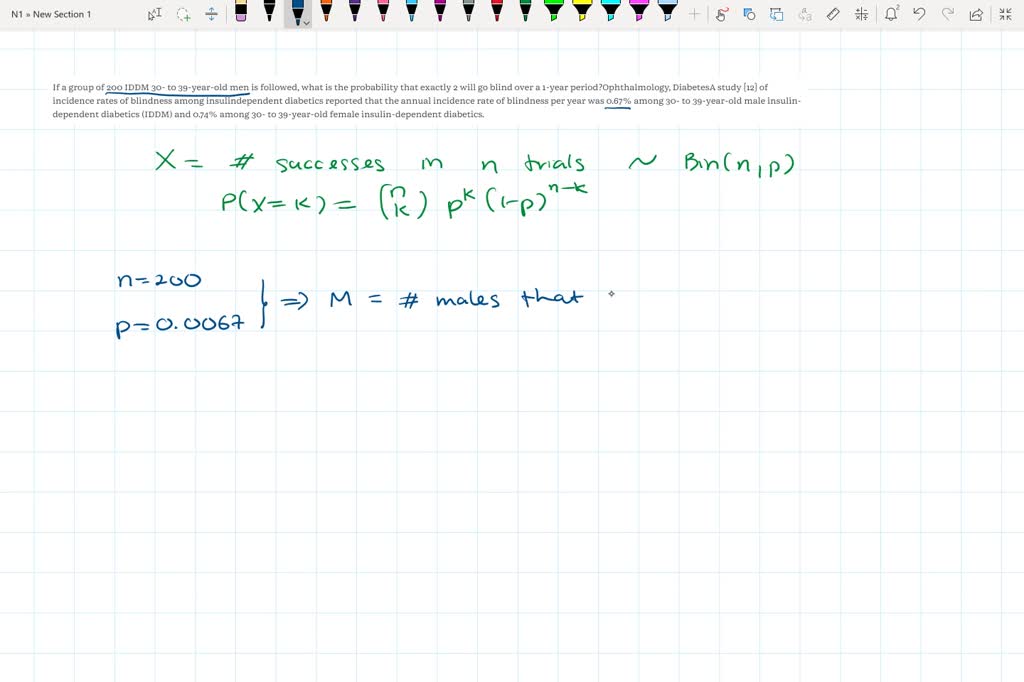 N1 » New Section 1
If a group of 200 IDDM 30- to 39-year-old men is followed, what is the probability that exactly 2 will go blind over a 1-year period?Ophthalmology, DiabetesA study [12] of
incidence rates of blindness among insulindependent diabetics reported that the annual incidence rate of blindness per year was 0.67% among 30- to 39-year-old male insulin-
dependent diabetics (IDDM) and 0.74% among 30- to 39-year-old female insulin-dependent diabetics.
X = # successes in n trials ~ Bin(n, p)
P(X=k) = (n k) p^k (1-p)^{n-k}
n=200
p=0.0067 } ⇒ M = # males that